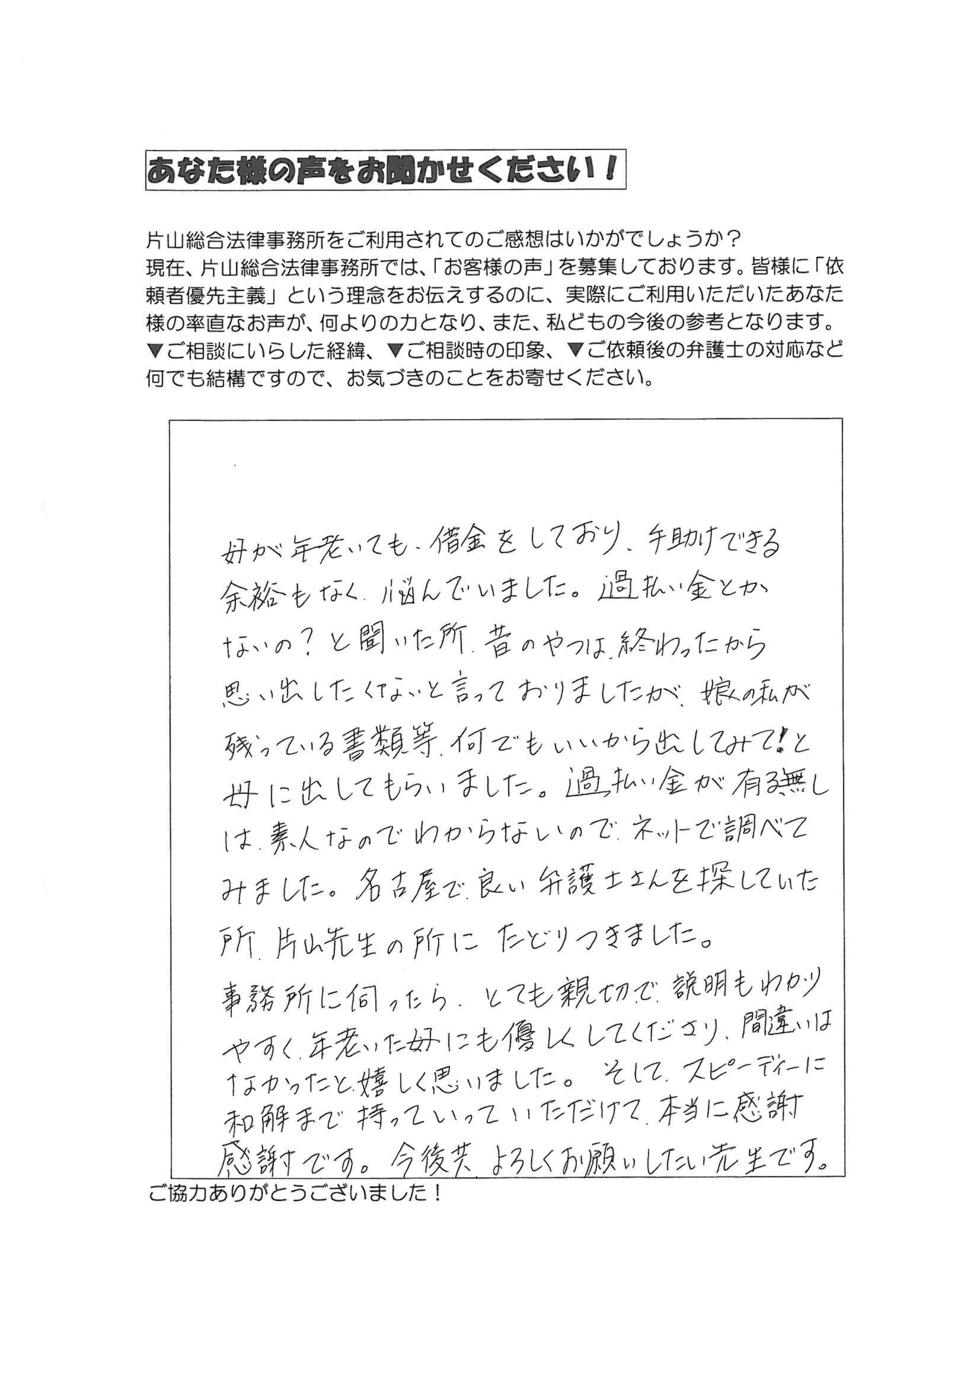 あなた様の声をお聞かせください！
片山総合法律事務所をご利用されてのご感想はいかがでしょうか？
現在、片山総合法律事務所では、「お客様の声」を募集しております。皆様に「依
頼者優先主義」という理念をお伝えするのに、実際にご利用いただいたあなた
様の率直なお声が、何よりの力となり、また、私どもの今後の参考となります。
▼ご相談にいらした経緯、▼ご相談時の印象、▼ご依頼後の弁護士の対応など
何でも結構ですので、お気づきのことをお寄せください。
母が年老いても、借金をしており、手助けできる
余裕もなく、悩んでいました。過払い金とか
ないの？と聞いた所、昔のやつは、終わったから
思い出したくないと言っておりましたが、娘の私が
残っている書類等、何でもいいから出してみて！と
母に出してもらいました。過払い金が有る無し
は、素人なのでわからないので、ネットで調べて
みました。名古屋で、良い弁護士さんを探していた
所、片山先生の所に たどりつきました。
事務所に伺ったら、とても親切で、説明もわかり
やすく、年老いた母にも優しくしてくださり、間違いは
なかったと、嬉しく思いました。そして、スピーディーに
和解まで持っていっていただけて、本当に感謝
感謝です。今後共、よろしくお願いしたい先生です。
ご協力ありがとうございました！